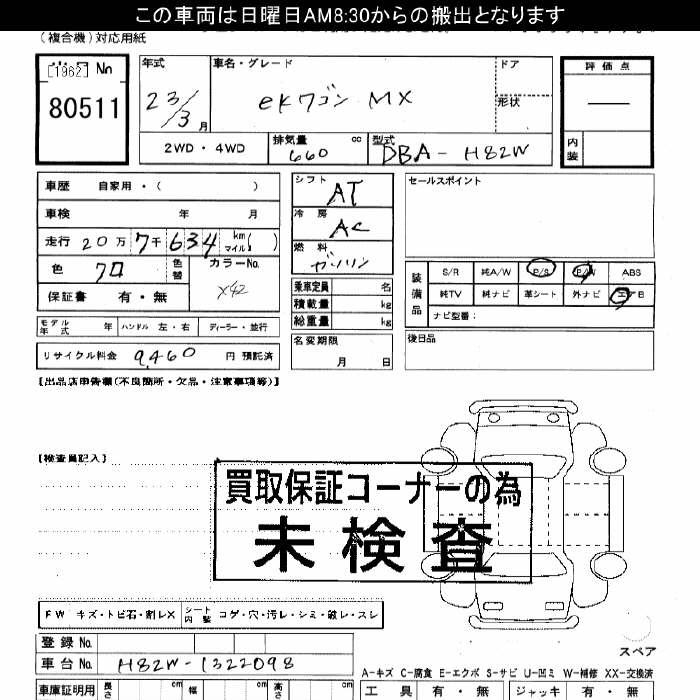 この車両は日曜日AM8:30からの搬出となります
(複合機)対応用紙
[1962] No
80511
年式 23/3月
車名・グレード ekワゴン MX
ドア
形状
評価点
内装
2WD・4WD
排気量 660 cc
型式 DBA-H82W
車歴 自家用・( )
車検 年 月
走行 20万7千634 km マイル( )
色 クロ
色替
カラーNo. X42
保証書 有・無
シフト AT
冷房 AC
燃料 ガソリン
乗車定員 名
積載量 kg
総重量 kg
セールスポイント
装備品
S/R 純A/W P/S P/W ABS
純TV 純ナビ 革シート 外ナビ エアB
ナビ型番:
モデル年式 年 ハンドル 左・右 ディーラー・並行
名変期限 月 日
後日品
リサイクル料金 9,460 円 預託済
【出品店申告欄(不良箇所・欠品・注意事項等)】
【検査員記入】
買取保証コーナーの為
未検査
FW キズ・トビ石・割レX
シート内装 コゲ・穴・汚レ・シミ・破レ・スレ
登録No.
車台No. H82W-1322098
スペア
A-キズ C-腐食 E-エクボ S-サビ U-凹ミ W-補修 XX-交換済
車庫証明用 長さ cm 幅 cm 高さ cm
工具 有・無 ジャッキ 有・無